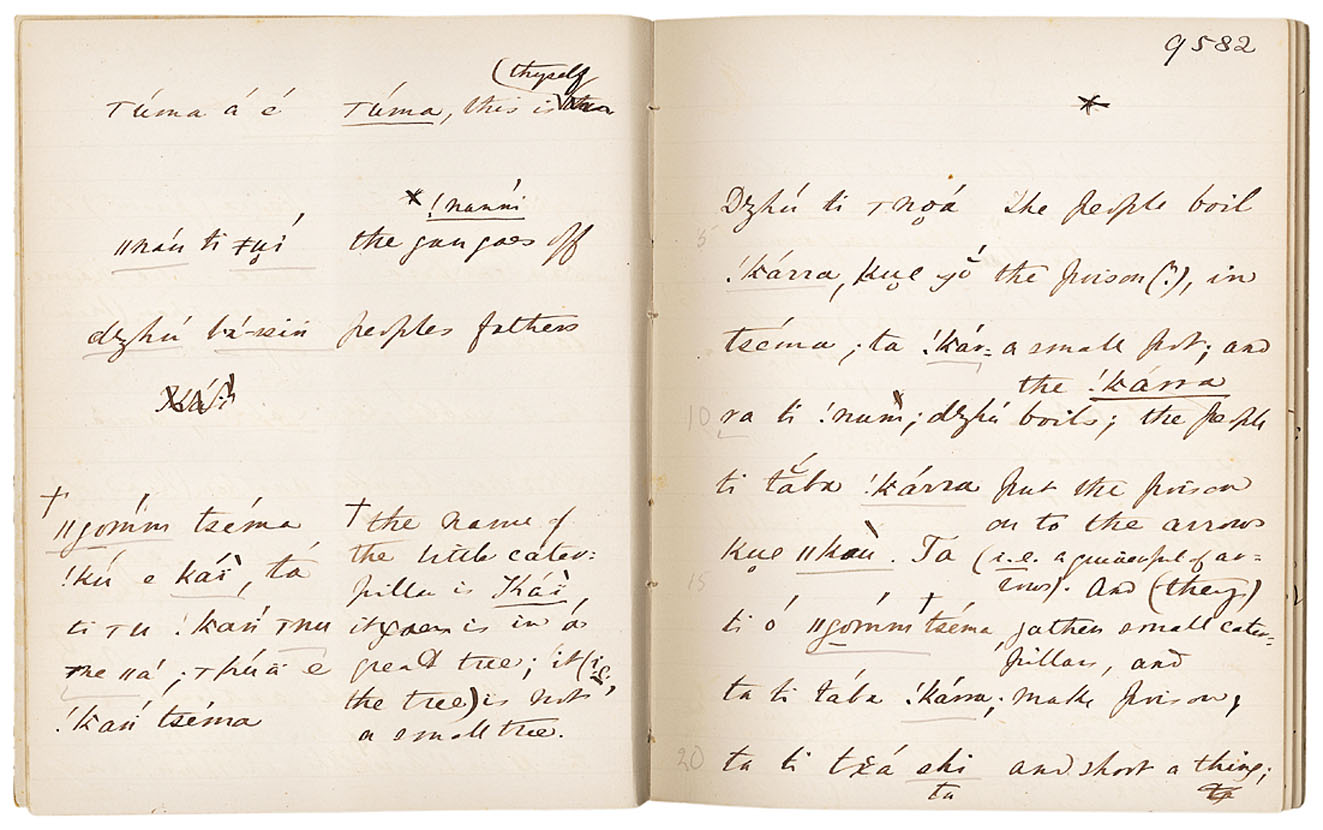 (thyself
Túma á é Túma, this is
! nanni
"náu ti the gun goes off
dzhú bá-ssin peoples fathers
"gomm tséma † the name of
!kú e káï, tá the little cater=
pillar is Káï,
ti tu !kań it is in a
great tree; it (i.e.
the tree) is not
!kań tséma a small tree.
9582
Dzhú ti The people boil
5
!kárra, kue the poison (?), in
tséma; ta !kár= a small pot; and
the !kárra
10 ra ti !num; dzhú boils; the people
ti tába !kárra put the poison
on to the arrows
kue "kaù. Ta (i.e. a quiverful of ar=
15 rows). And (they)
ti ó "gómm tséma, gather small cater=
pillars, and
ta ti tába !kárra; make poison,
20 ta ti txá shi and shoot a thing;
ta